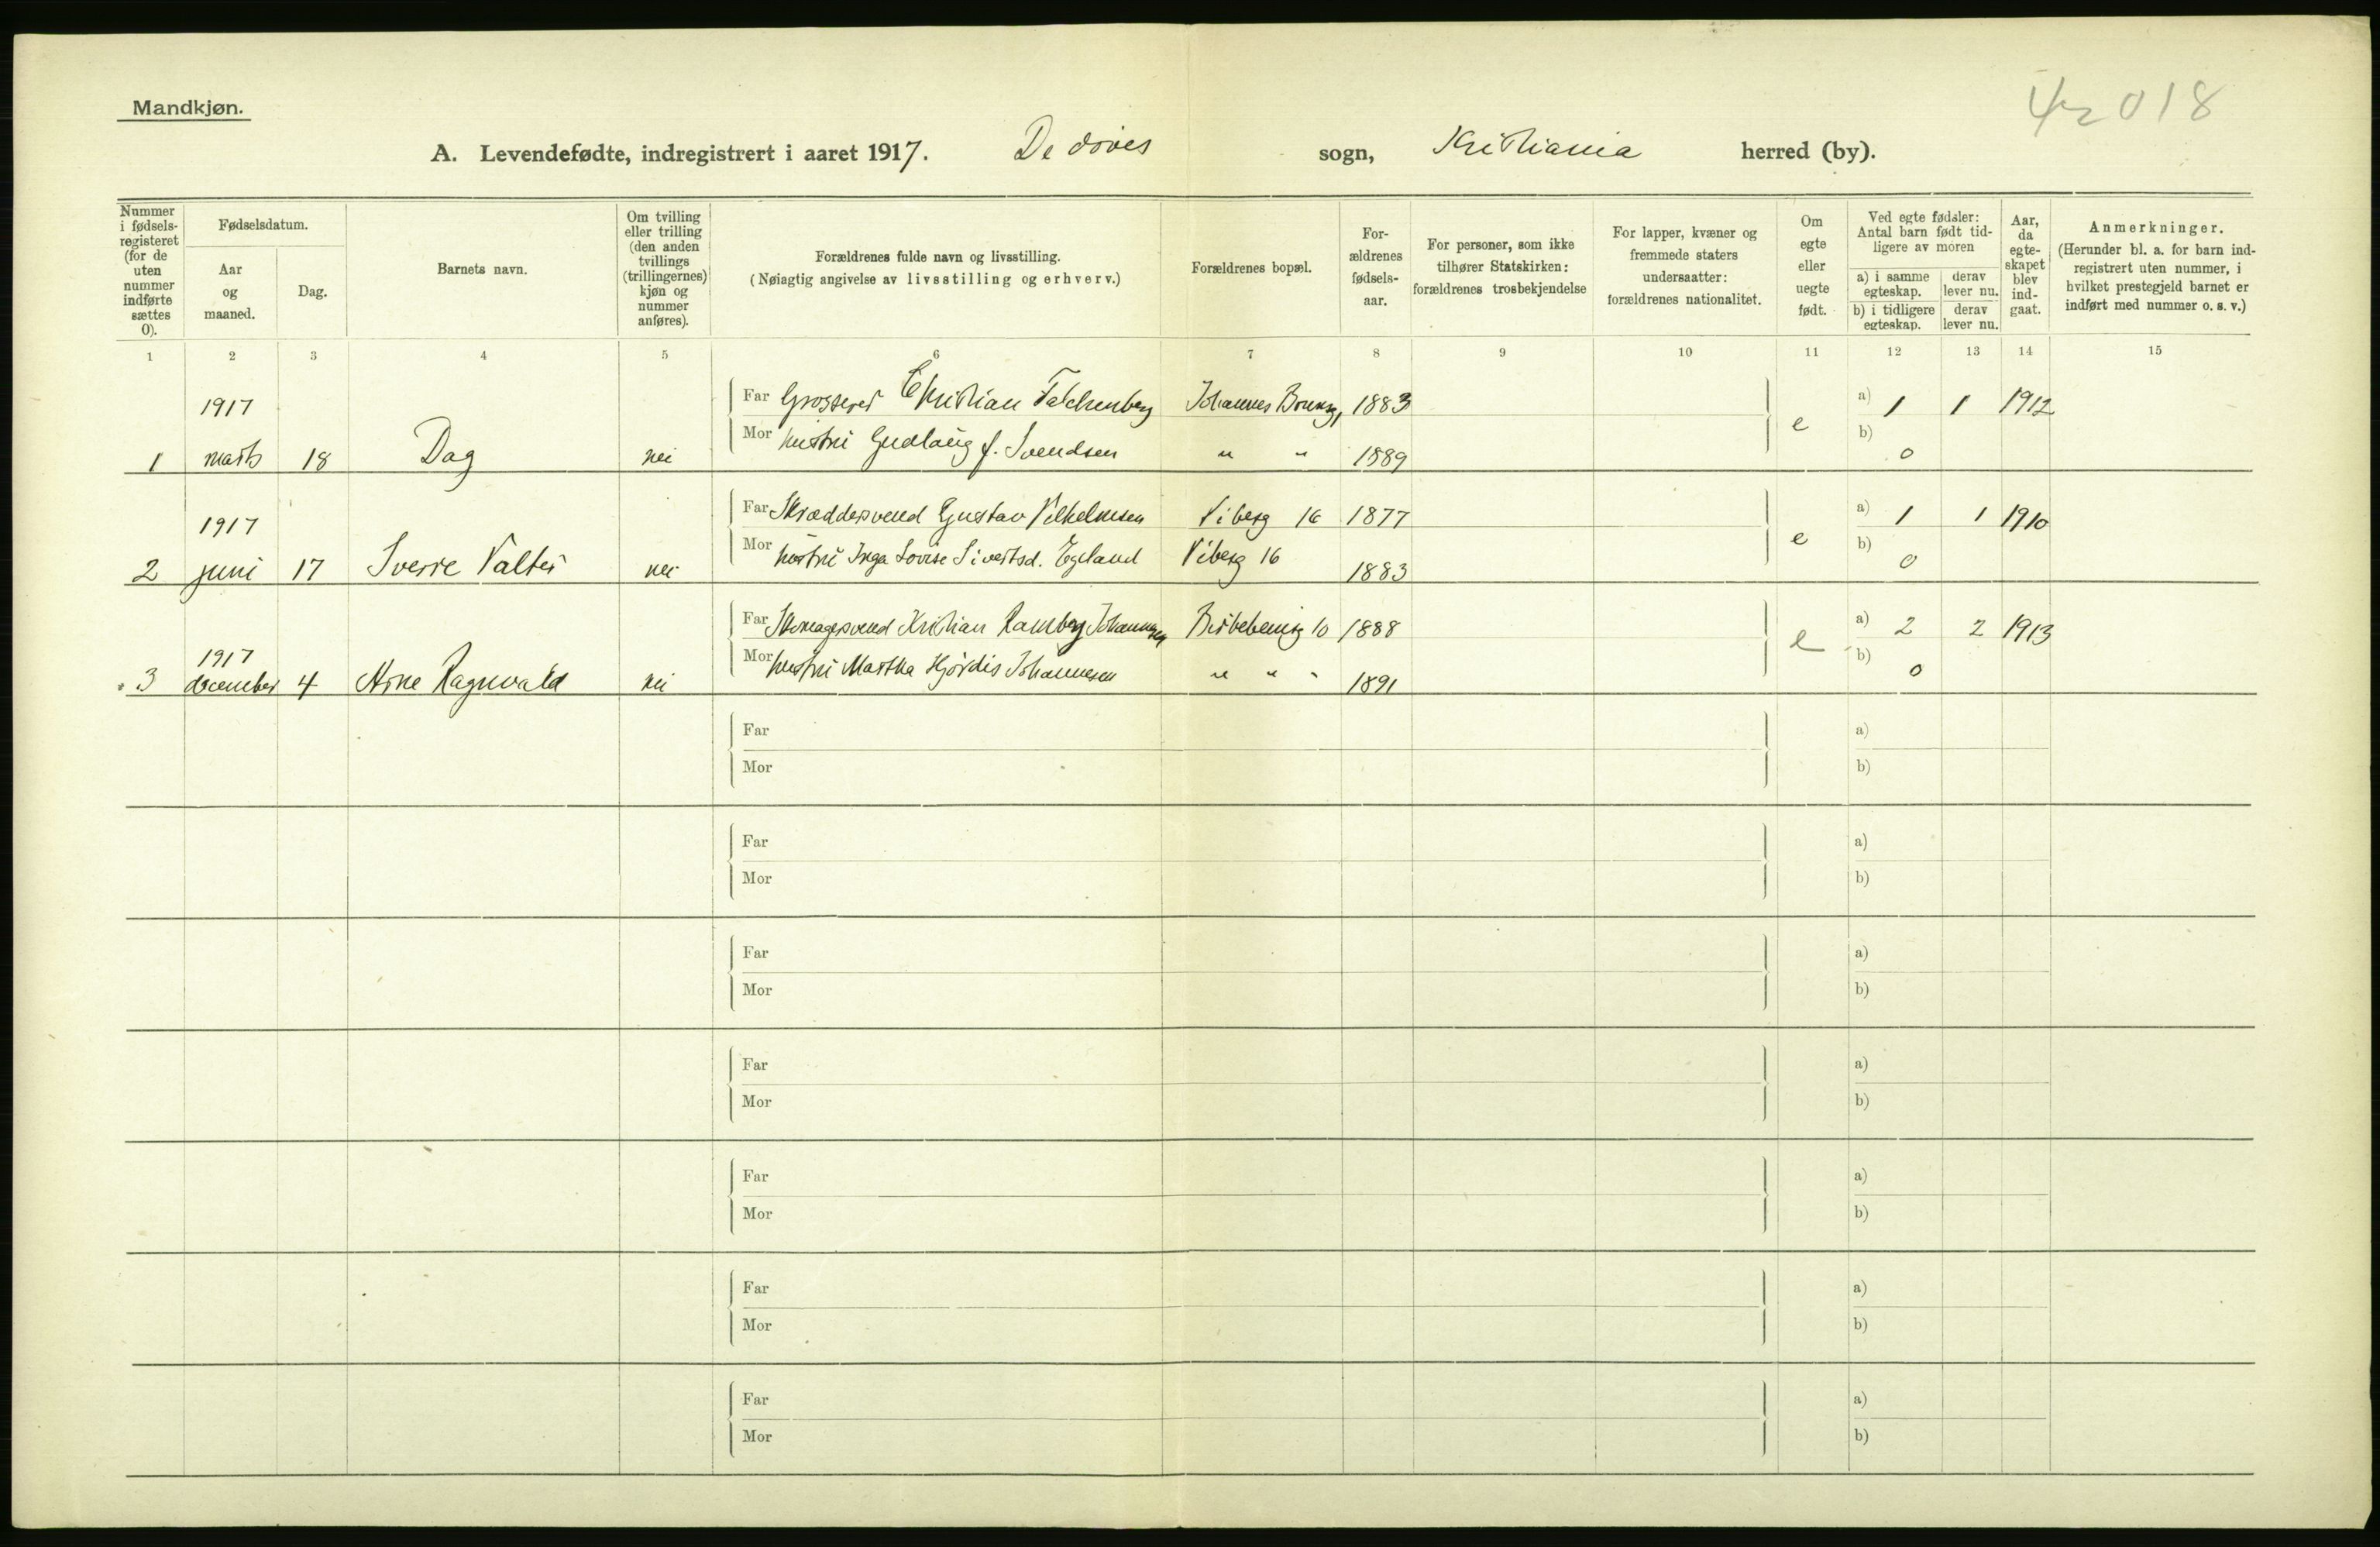 Mandkjøn.
018
A. Levendefødte, indregistrert i aaret 1917. De døves sogn, Kristiania herred (by).
Nummer i fødsels-registeret (for de uten nummer indførte sættes 0).
Fødselsdatum.
Aar og maaned.
Dag.
Barnets navn.
Om tvilling eller trilling (den anden tvillings (trillingernes) kjøn og nummer anføres).
Forældrenes fulde navn og livsstilling.
(Nøiagtig angivelse av livsstilling og erhverv.)
Forældrenes bopæl.
For-ældrenes fødsels-aar.
For personer, som ikke tilhører Statskirken: forældrenes trosbekjendelse
For lapper, kvæner og fremmede staters undersaatter: forældrenes nationalitet.
Om egte eller uegte født.
Ved egte fødsler: Antal barn født tid-ligere av moren
a) i samme egteskap.
derav lever nu.
b) i tidligere egteskap.
derav lever nu.
Aar, da egte-skapet blev ind-gaat.
Anmerkninger.
(Herunder bl. a. for barn ind-registrert uten nummer, i hvilket prestegjeld barnet er indført med nummer o. s. v.)
1 2 3 4 5 6 7 8 9 10 11 12 13 14 15
1917 Far Grosserer Christian Falchenberg Johannes Brunsg, 1883 e a) 1 1 1912
1 marts 18 Dag nei Mor hustru Gudlaug f. Svendsen " " 1889 b) 0
1917 Far Skræddersvend Gustav Vilhelmsen Viberg 16 1877 e a) 1 1 1910
2 juni 17 Sverre Valter nei Mor hustru Inga Lovise Sivertsd. Egeland Viberg 16 1883 b) 0
1917 Far Skomagersvend Kristian Ramberg Johannesen Birkebeinerg 10 1888 e a) 2 2 1913
3 december 4 Arne Ragnvald nei Mor hustru Martha Hjørdis Johannesen " " " 1891 b) 0
Far a)
Mor b)
Far a)
Mor b)
Far a)
Mor b)
Far a)
Mor b)
Far a)
Mor b)
Far a)
Mor b)
Far a)
Mor b)